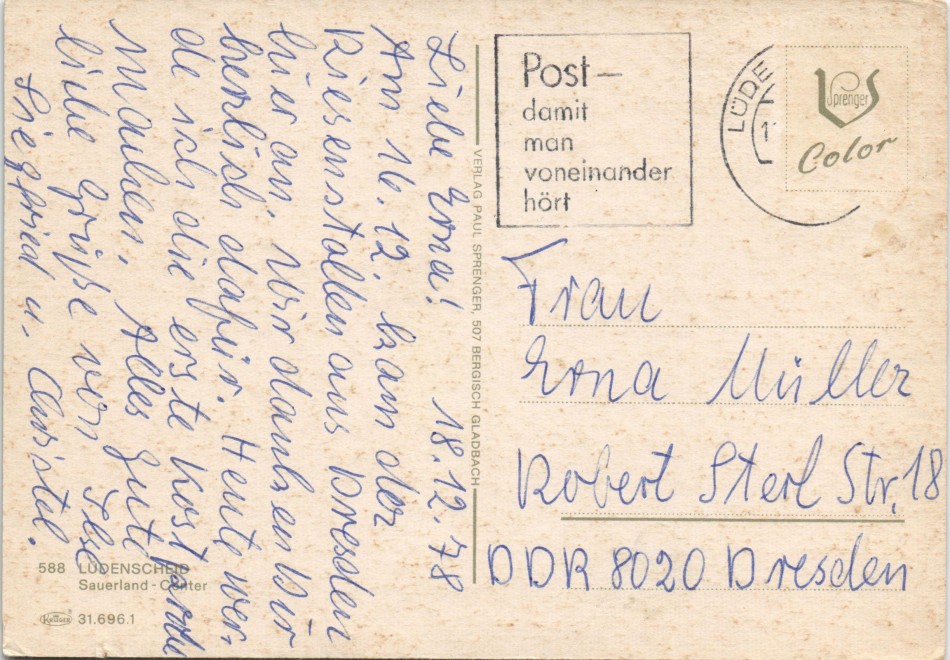 Liebe Erna! 18.12.78
Am 16.12. kam der
Riesenstollen aus Dresden
hier an. Wir danken Dir
herzlich dafür. Heute wer-
de ich die erste Kost
machen. Alles Gute
liebe Grüße von
Siegfried u. Christel.
588 LÜDENSCHEID
Sauerland-Center
Krüger 31.696.1
VERLAG PAUL SPRENGER, 507 BERGISCH GLADBACH
Post-
damit
man
voneinander
hört
LÜDE
Sprenger
Color
Frau
Erna Müller
Robert Sterl Str. 18
DDR 8020 Dresden